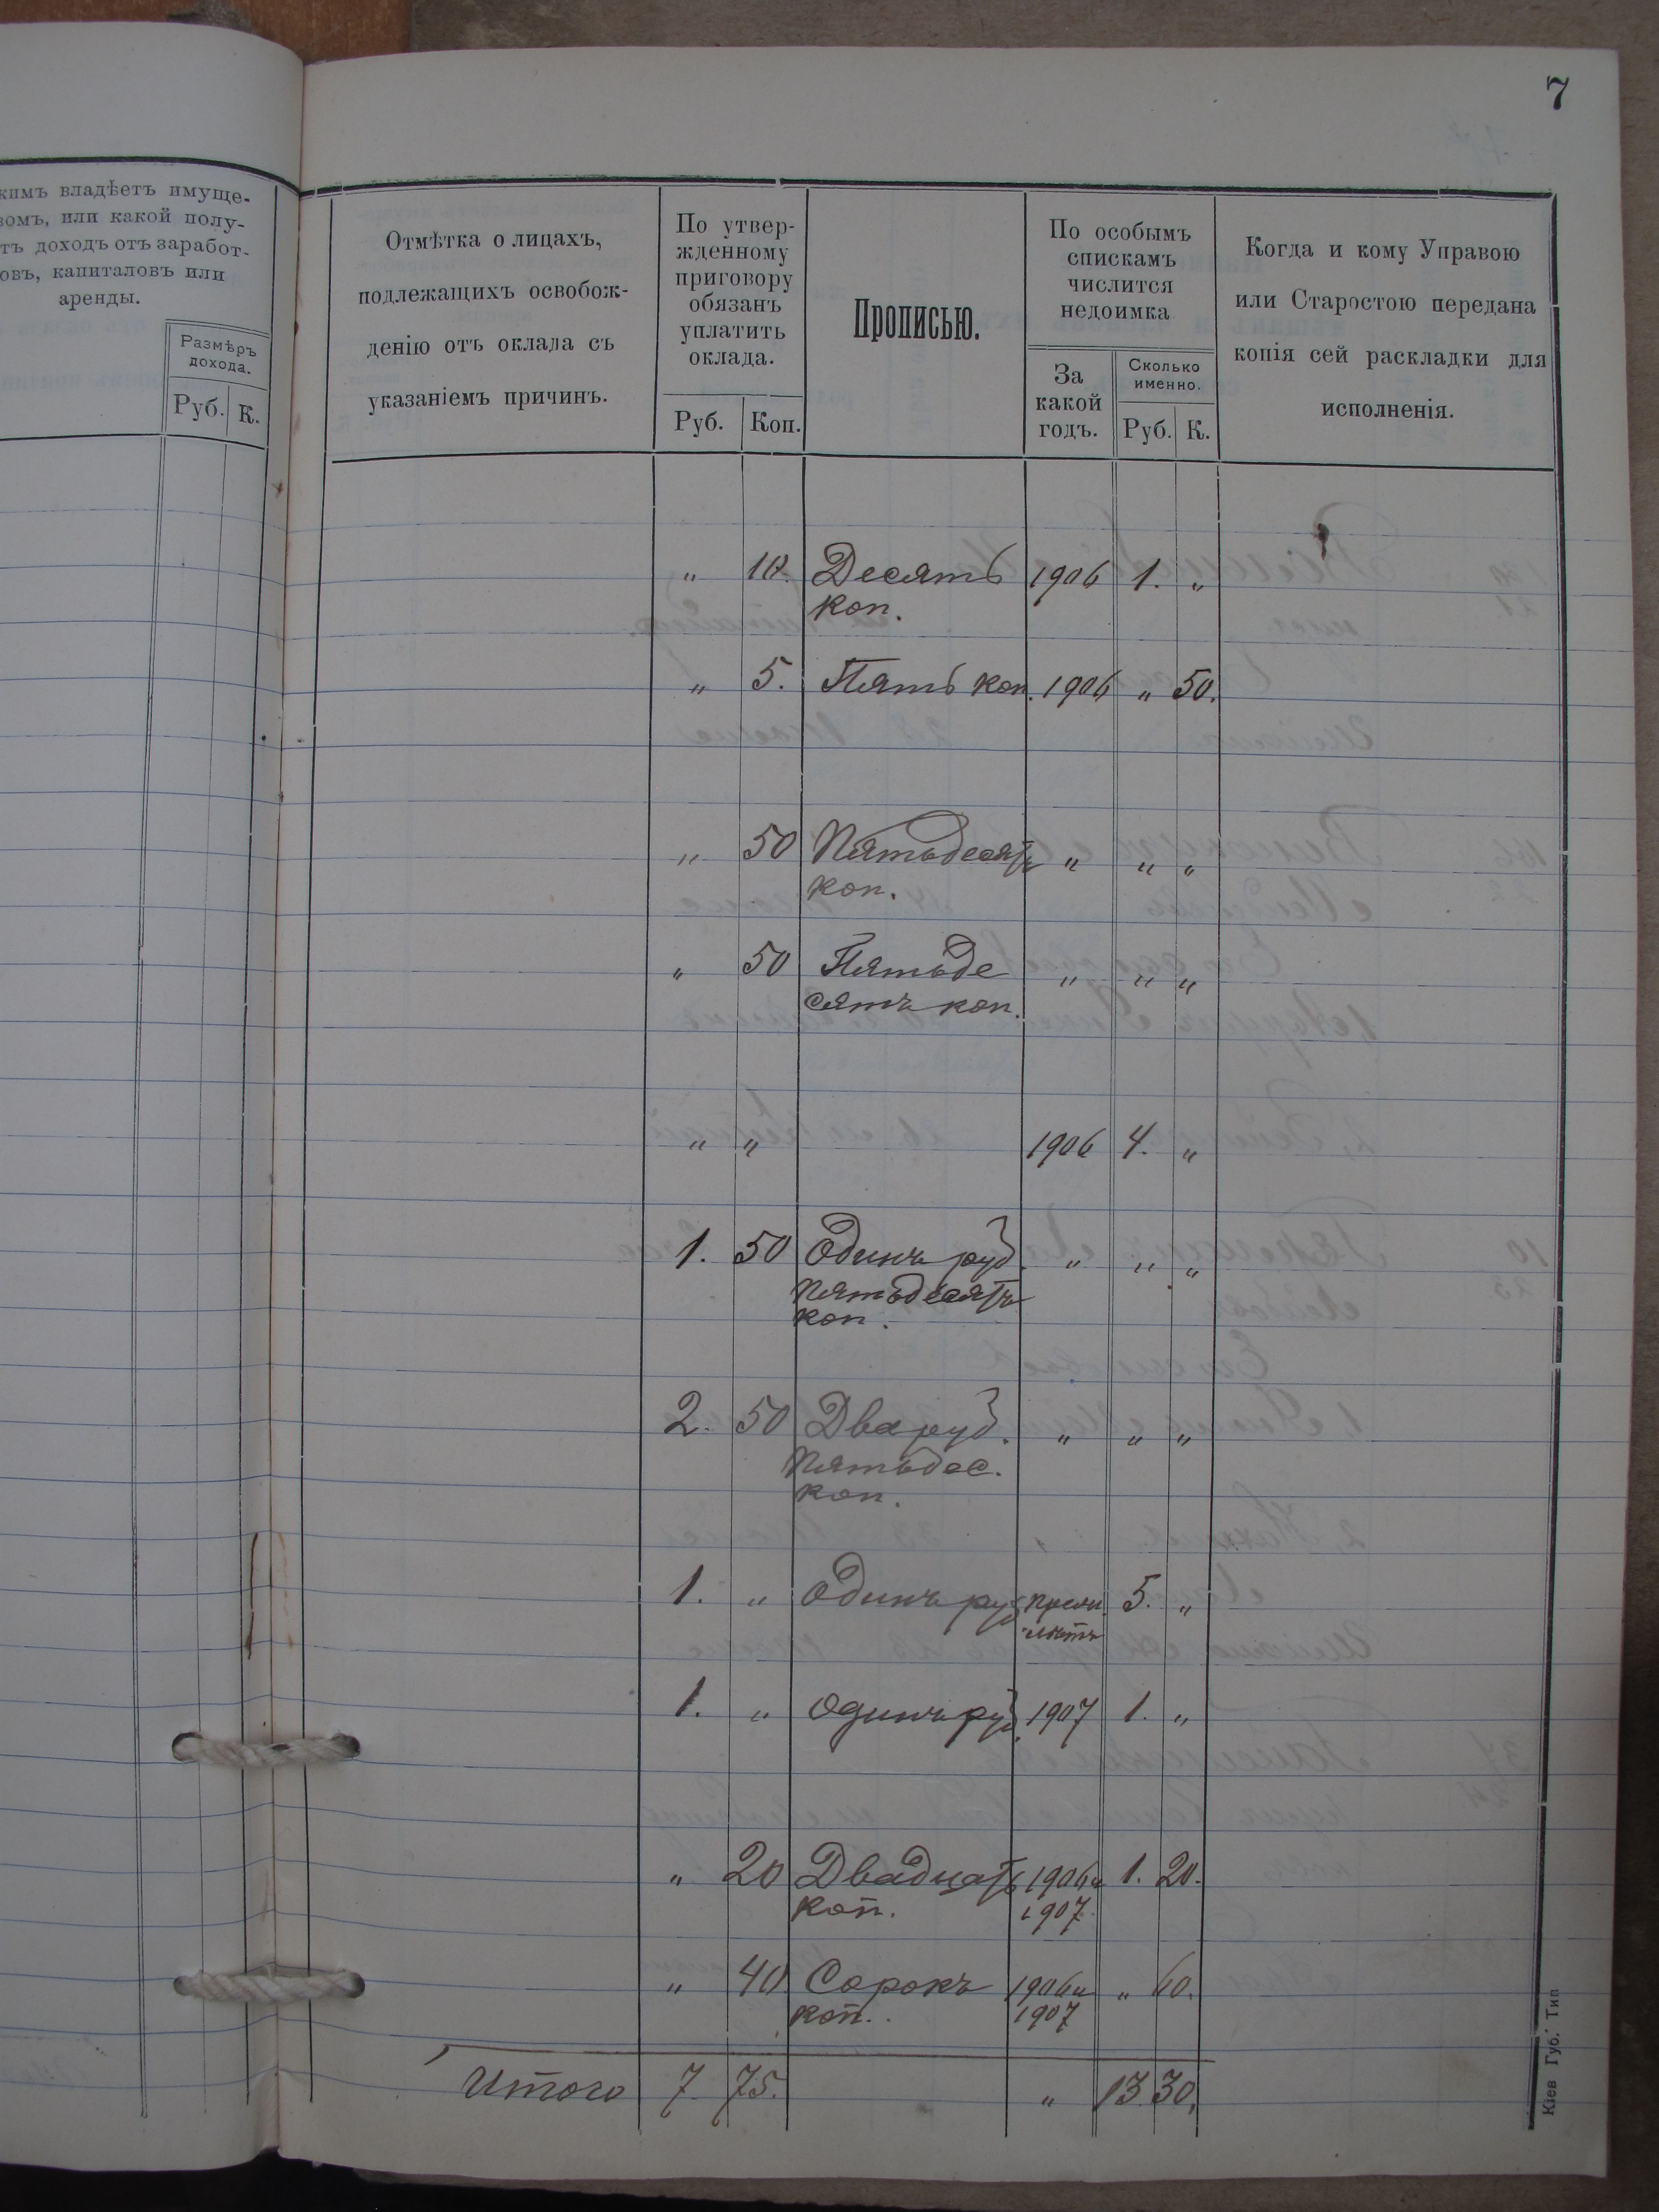 7
кимъ владѣетъ имуще-
вомъ, или какой полу-
тъ доходъ отъ заработ-
овъ, капиталовъ или
аренды.
Размѣръ
дохода.
Руб. К.
Отмѣтка о лицахъ,
подлежащихъ освобож-
денію отъ оклада съ
указаніемъ причинъ.
По утвер-
жденному
приговору
обязанъ
уплатить
оклада.
Руб. Коп.
Прописью.
По особымъ
спискамъ
числится
недоимка
За
какой
годъ.
Сколько
именно.
Руб. К.
Когда и кому Управою
или Старостою передана
копія сей раскладки для
исполненія.
„ 10. Десять 1906 1. „
коп.
„ 5. Пять коп. 1906 „ 50.
„ 50 Пятьдесятъ „ „ „
коп.
„ 50 Пятьде „ „ „
сятъ коп.
„ „ 1906 4. „
1. 50 Одинъ руб. „ „ „
пятьдесятъ
коп.
2. 50 Два руб. „ „ „
пятьдес.
коп.
1. „ Одинъ руб. 5. „
лѣтъ
1. „ Одинъ руб. 1907 1. „
„ 20 Двадцать 1906 и 1. 20.
коп. 1907
„ 40 Сорокъ 1906 и „ 60.
коп. 1907
Итого 7 75. „ 13 30.
Кіев Губ. Тип